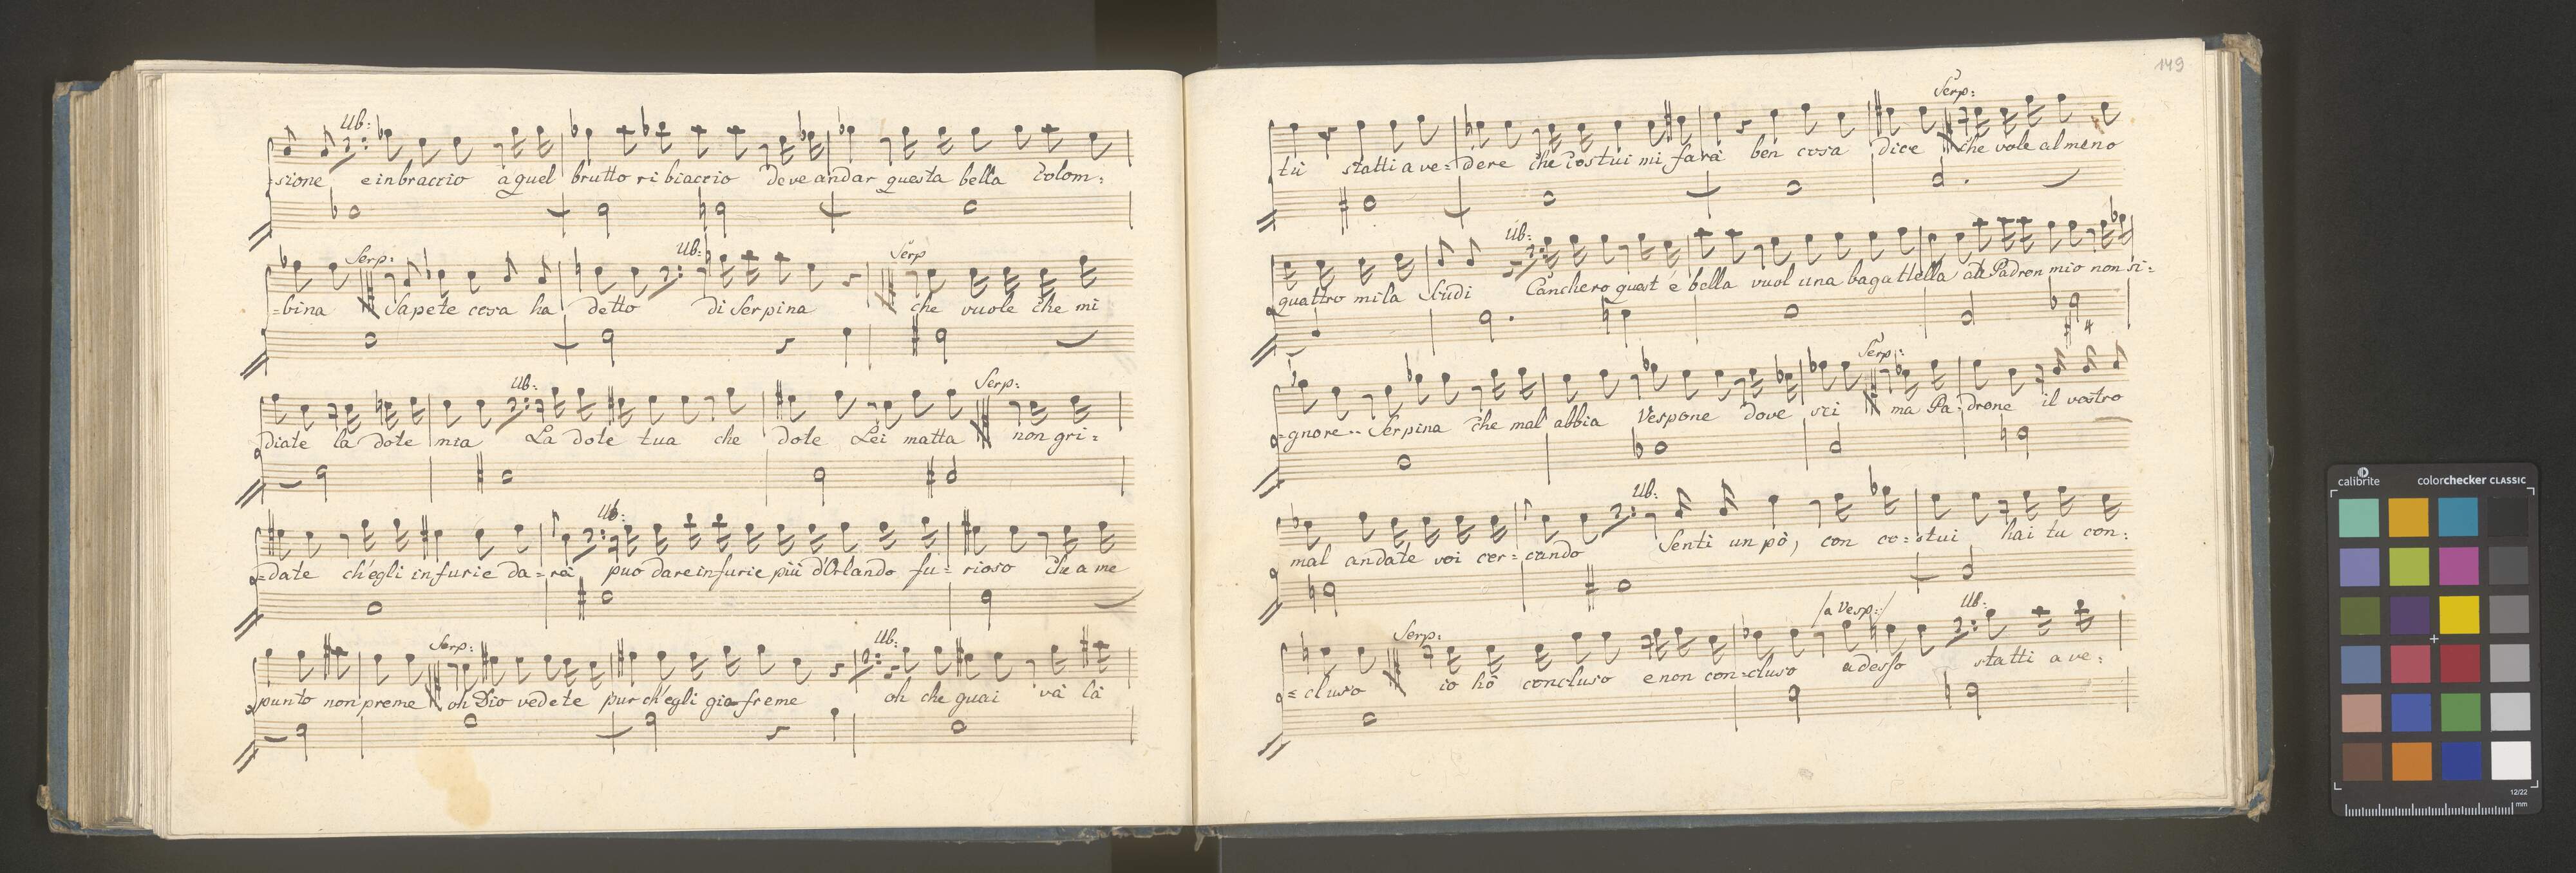 Ub:
=sione e in braccio a quel brutto ribiaccio deve andar questa bella Colom:
Serp: Ub: Serp
=bina Sapete cosa ha detto di Serpina che vuole che mi
Ub: Serp:
diate la dote mia La dote tua che dote Lei matta non gri=
Ub:
=date ch'egli in furie da=rà puo dare in furie più d'Orlando fu=rioso che a me
Serp: Ub:
punto non preme oh Dio vedete pur ch'egli gia freme oh che guai và là
149
Serp:
tù statti a ve=dere che costui mi farà ben cosa dice che vole almeno
Ub:
quattro mila Scudi Canchero quest' è bella vuol una bagattella ah Padron mio non si=
4
Serp:
=gnore.. Serpina che mal abbia Vespone dove sei ma Pa=drone il vostro
Ub:
mal andate voi cer=cando Senti un pò, con co=stui hai tu con:
Serp: /a Vesp:/ Ub:
=cluso io hò concluso e non con=cluso adesso statti a ve=
calibrite colorchecker CLASSIC
12/22
mm